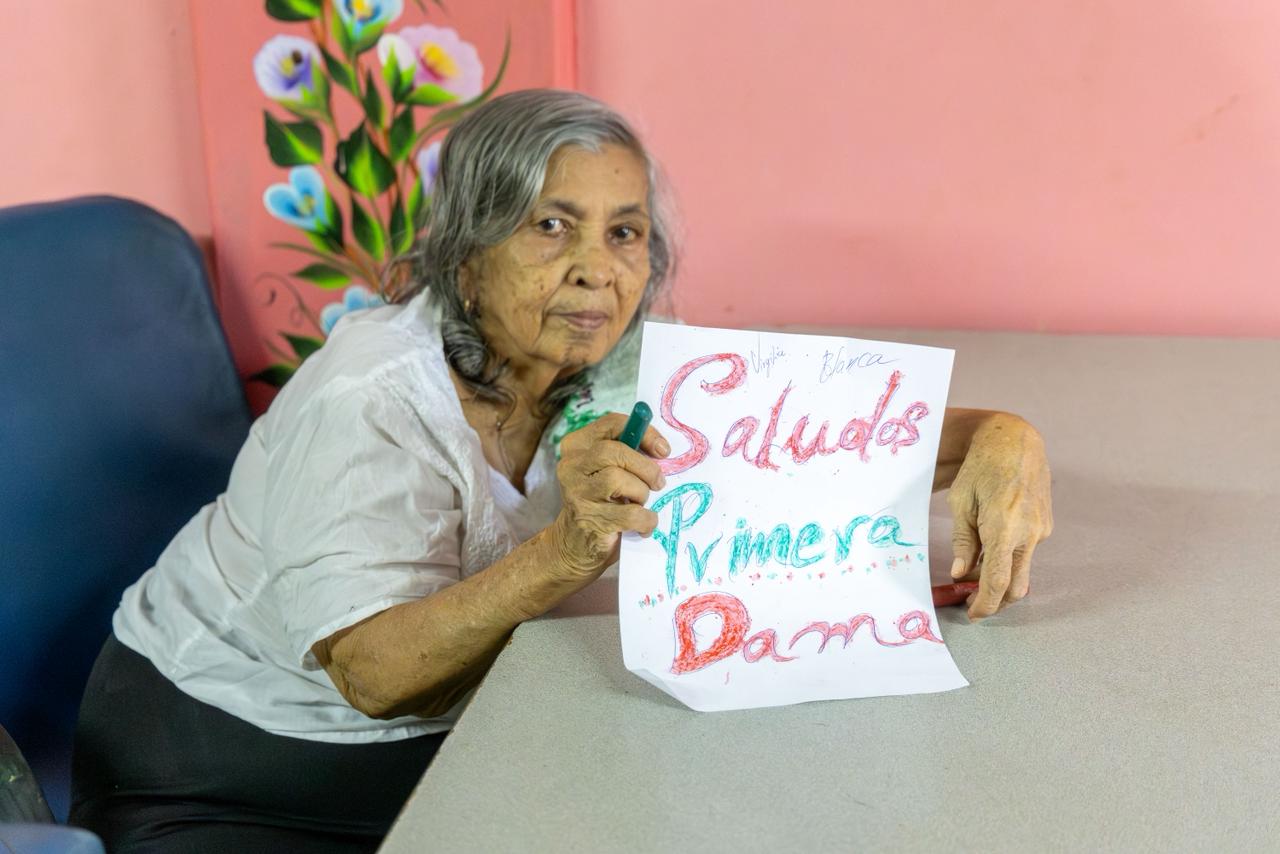 Virgilia Blanca
Saludos
Primera
Dama